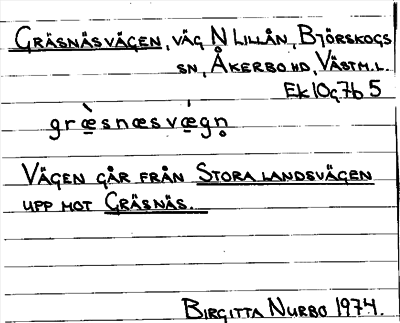 GRÄSNÄSVÄGEN, VÄG N LILLÅN, BJÖRSKOGS
SN, ÅKERBO HD, VÄSTM.L.
EK 10g7b 5
græ̀snæsvǽgn̥
VÄGEN GÅR FRÅN STORA LANDSVÄGEN
UPP MOT GRÄSNÄS.
BIRGITTA NURBO 1974.